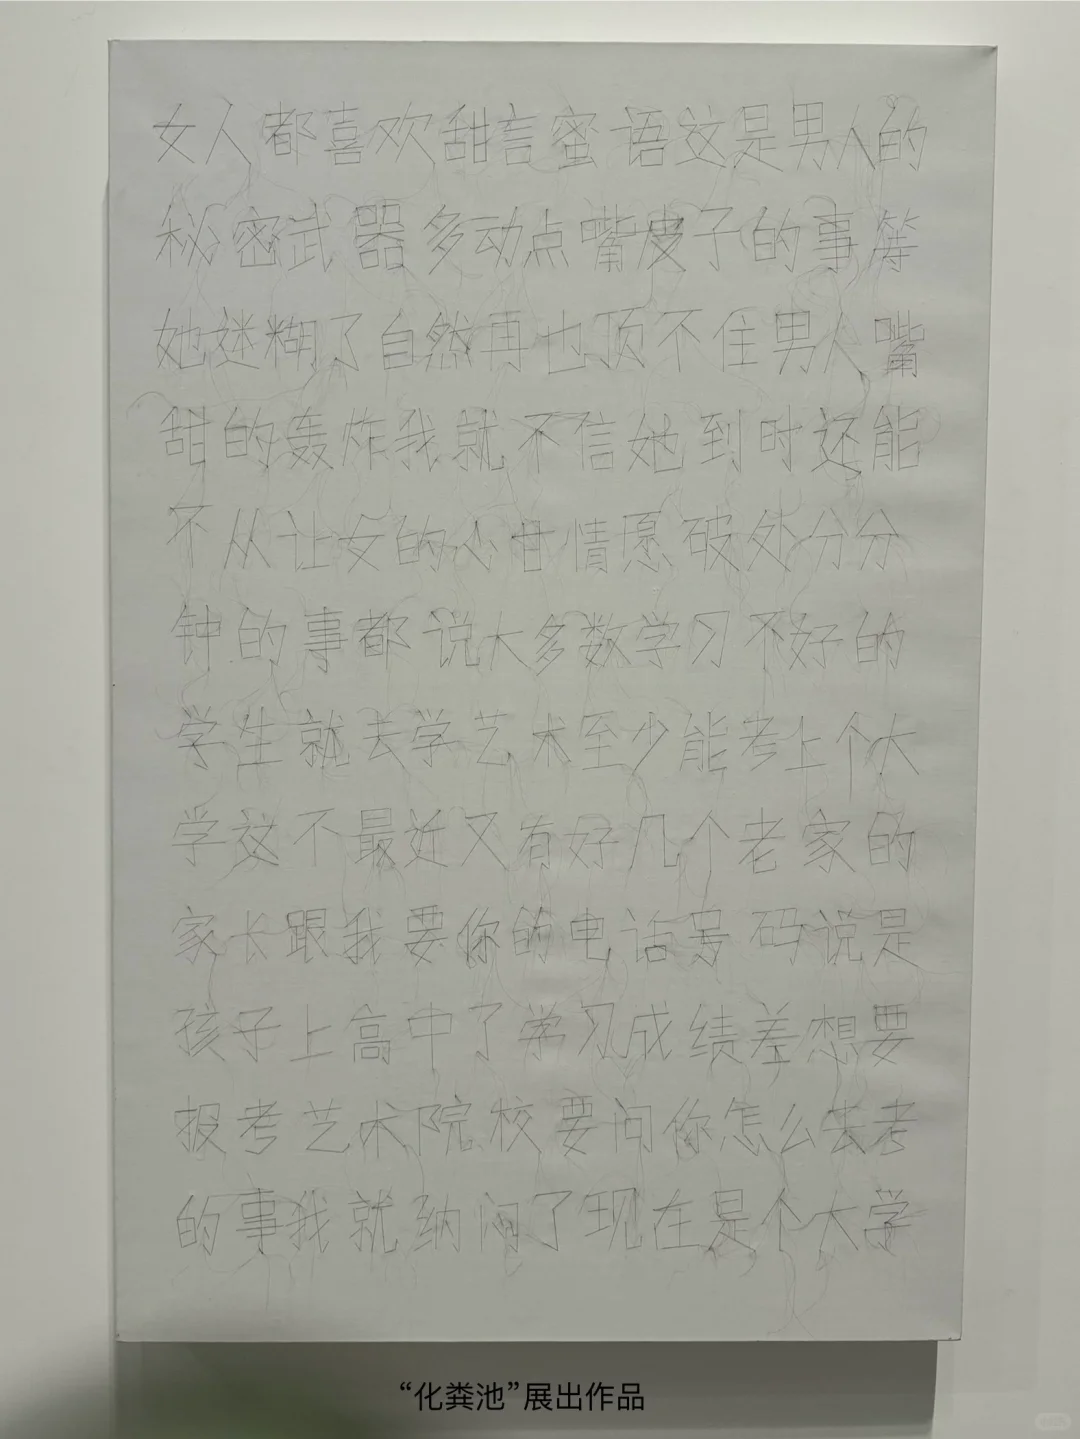 女人都喜欢甜言蜜语这是男人的
秘密武器多动点嘴皮子的事等
她迷糊了自然再也顶不住男人嘴
甜的轰炸我就不信她到时还能
不从让女的心甘情愿破处分分
钟的事都说大多数学习不好的
学生就去学艺术至少能考上个大
学这不最近又有好几个老家的
家长跟我要你的电话号码说是
孩子上高中了学习成绩差想要
报考艺术院校要问你怎么去考
的事我就纳闷了现在是个大学
“化粪池”展出作品